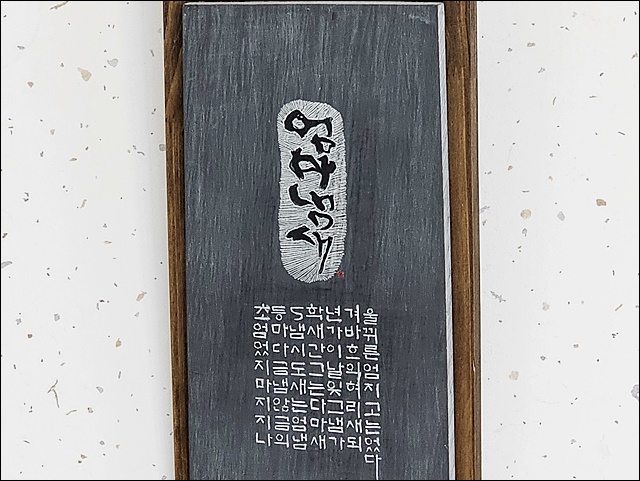 엄마냄새
초등5학년겨울
엄마냄새가바뀌
었다시간이흐른
지금도그날의엄
마냄새는잊혀지
지않는다그리고
지금엄마냄새는
나의냄새가되었
다